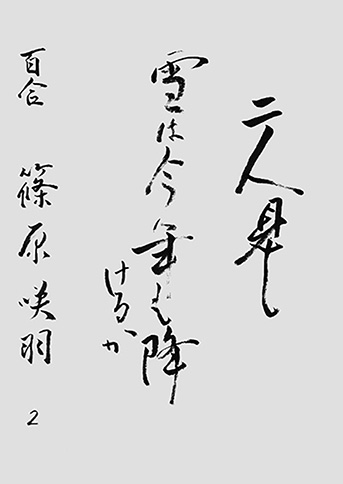 二人見し
雪は今年も降
けるか
百合 篠原咲羽 2